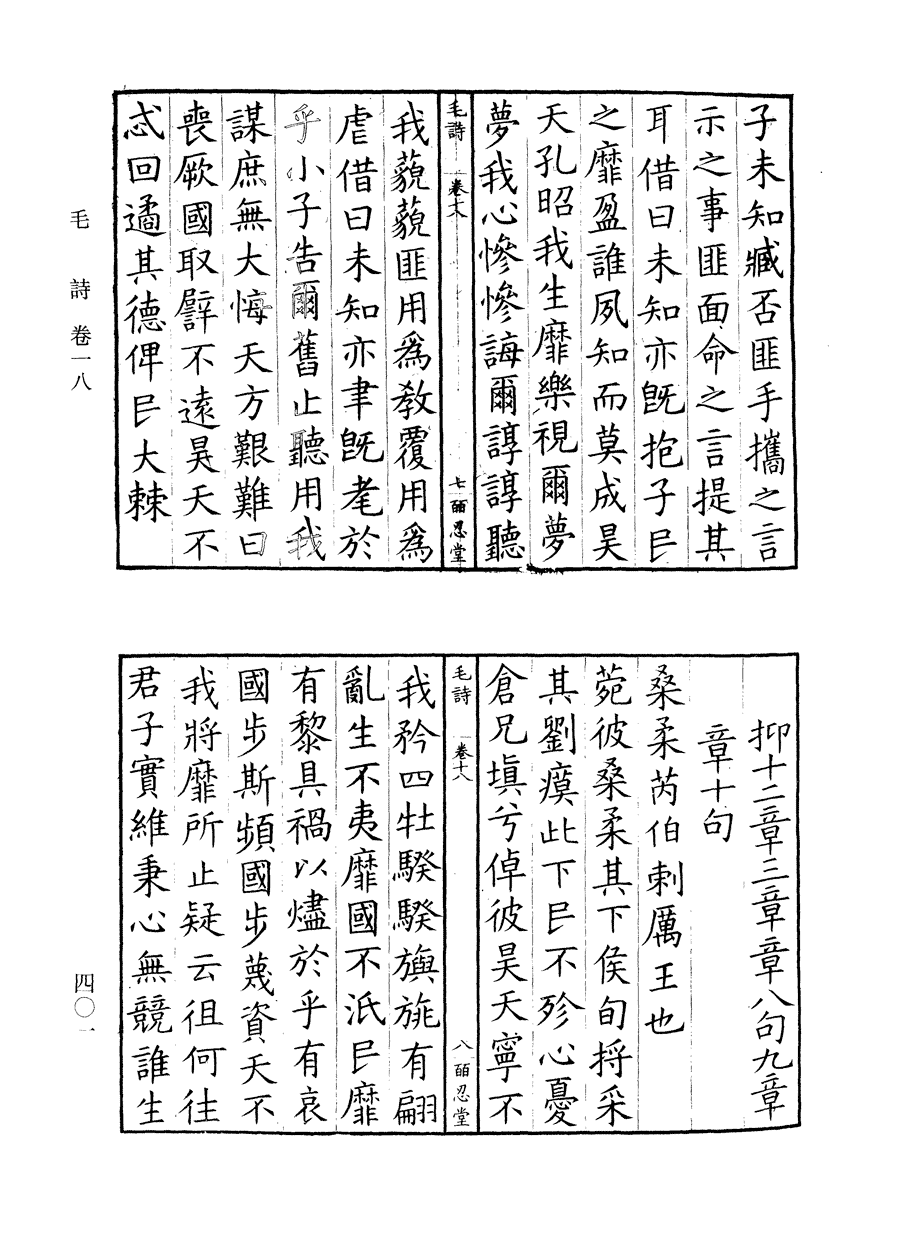 子未知臧否匪手攜之言
示之事匪面命之言提其
耳借曰未知亦旣抱子民
之靡盈誰夙知而莫成昊
天孔昭我生靡樂視爾夢
夢我心慘慘誨爾諄諄聽
毛詩 卷十八 七 皕忍堂
我藐藐匪用爲敎覆用爲
虐借曰未知亦聿旣耄於
乎小子告爾舊止聽用我
謀庶無大悔天方艱難曰
喪厥國取譬不遠昊天不
忒回遹其德俾民大棘
毛詩 卷一八
抑十二章三章章八句九章
章十句
桑柔芮伯刺厲王也
菀彼桑柔其下侯旬捋采
其劉瘼此下民不殄心憂
倉兄塡兮倬彼昊天寧不
毛詩 卷十八 八 皕忍堂
我矜四牡騤騤旟旐有翩
亂生不夷靡國不泯民靡
有黎具禍以燼於乎有哀
國步斯頻國步蔑資天不
我將靡所止疑云徂何往
君子實維秉心無競誰生
四〇一